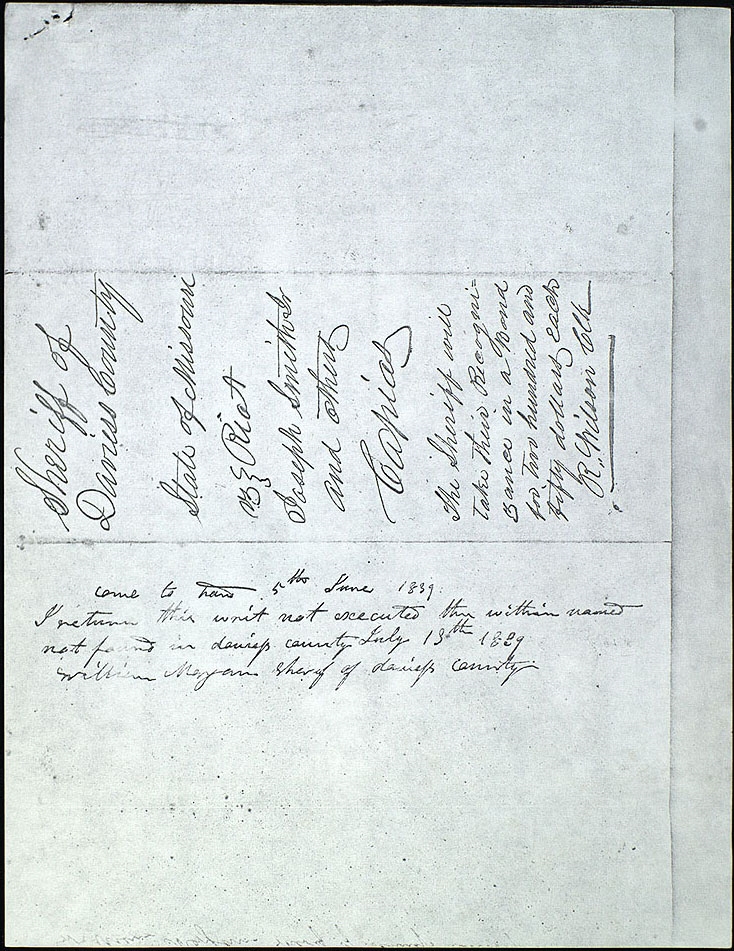 Sheriff of
Daviess County
State of Missouri
vs } Riot
Joseph Smith Jr
and others
Capias
The Sheriff will
take their Recogni-
zance in a Bond
for two hundred and
fifty dollars each
R. Wilson Clk
come to hand 5th June 1839.
I return this writ not executed the within named
not found in daviess county July 13th 1839
William Morgan Sherif of daviess county